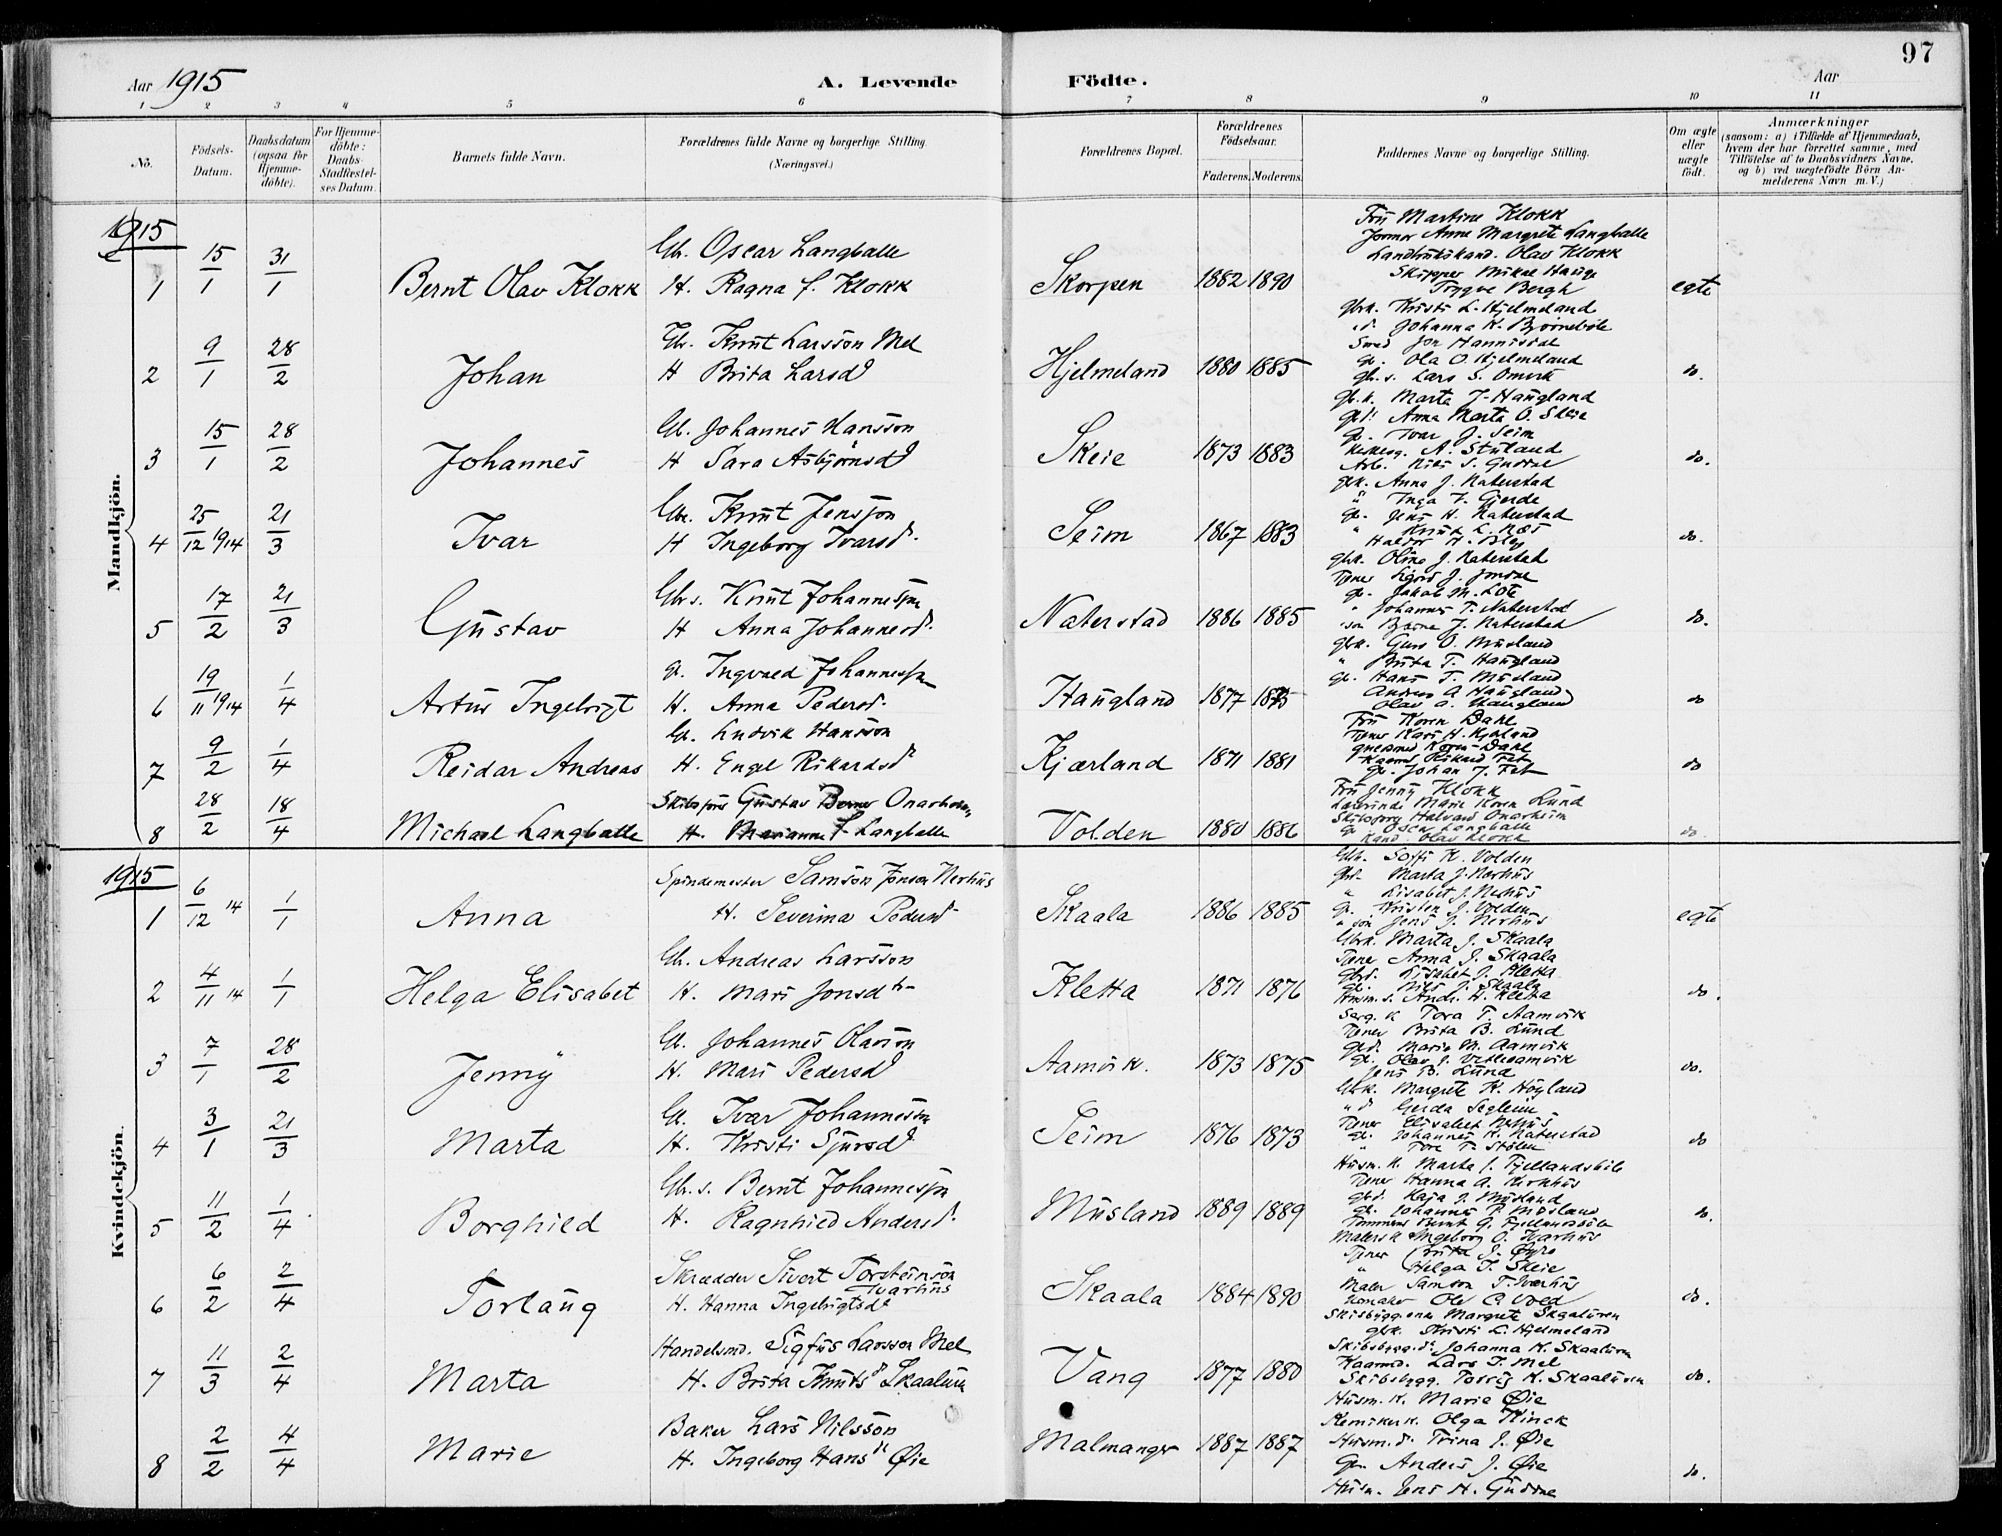 97
Aar 1915 A. Levende Födte. Aar
1 2 3 4 5 6 7 8 9 10 11
Nô.
Födsels-Datum.
Daabsdatum (ogsaa for Hjemme-döbte).
For Hjemme-döbte: Daabs-Stadfæstel-ses Datum.
Barnets fulde Navn.
Forældrenes fulde Navne og borgerlige Stilling (Næringsvei.)
Forældrenes Bopæl.
Forældrenes Födselsaar.
Faderens. Moderens.
Faddernes Navne og borgerlige Stilling.
Om ægte eller uægte födt.
Anmærkninger
(saasom: a) i Tilfælde af Hjemmedaab,
hvem der har forrettet samme, med
Tilföielse af to Daabsvidners Navne,
og b) ved uægtefödte Börn An-
melderens Navn m. V.)
Mandkjön.
1915
1 15/1 31/1 Bernt Olav Klokk
Gbr. Oscar Langballe
H. Ragna f. Klokk
Skorpen 1882 1890
Fru Martine Klokk
Anne Margrete Langballe
Olav Klokk
Skipper Mikal Hauge
Trygve Bergh
egte
2 9/1 28/2 Johan
Gbr. Knut Larsson Mel
H Brita Larsd
Hjelmeland 1880 1885
Gbrk. Kristi L. Hjelmeland
d. Johanna K. Bjørnebøle
Smed Jon Hannisdal
Gb. Ola O. Hjelmeland
Gb. s. Lars S. Omvik
do.
3 15/1 28/2 Johannes
Gb. Johannes Hansson
H Sara Asbjørnsd
Skeie 1873 1883
Gb.k. Marta J. Haugland
Anna Marta O. Skeie
Gb. Ivar J. Seim
A. Stuland
Arb. Nils S. Guddal
do.
4 25/12 1914 21/3 Ivar
Gbr. Knut Jensson
H Ingeborg Ivarsd.
Seim 1867 1883
Gbk. Anna J. Naterstad
" Inga J. Gjerde
Gb. Jens H. Naterstad
" Knut L. Næs
do.
5 17/2 21/3 Gustav
Gbr s. Knut Johannesson
H Anna Johannesd.
Naterstad 1886 1885
Gbk. Oline J. Naterstad
Tjener Sigrid J.
Gb. Jakob M. Løte
" Johannes T. Naterstad
" søn Bjarne J. Naterstad
do.
6 19/11 1914 1/4 Artur Ingebrigt
Gb. Ingvald Johannesson
H. Anna Pedersd.
Haugland 1877 1875
Gbk. Guro O. Musland
" Brita T. Haugland
Gb. Hans T. Musland
Andreas A. Haugland
Olav A. Haugland
do
7 9/2 1/4 Reidar Andreas
Gb. Ludvik Hansson
H. Engel Rikardsd
Kjærland 1871 1881
Fru Koren Dahl
Tjener Kari H. Kjerland
Koren-Dahl
Rikard Fet
Gb. Johan J. Fet
do
8 28/2 18/4 Michael Langballe
Skibsfører Gustav Berner Onarheim
H. Marianne f. Langballe
Volden 1880 1886
Fru Jenny Klokk
Lærerinde Marie Koren Lund
Skibsfører Halvard Onarheim
Gb Oscar Langballe
Kand Olav Klokk
do.
Kvindekjön.
1915
1 6/12 14 1/1 Anna
Spindemester Samson Jonson Nerhus
H. Severina Pedersd
Skaala 1886 1885
Gbk. Soffi K. Volden
Gbd. Marta J. Nerhus
" Lisabet J. Nerhus
Gb. Kristen J. Volden
" søn Jens J. Nerhus
egte
2 4/11 14 1/1 Helga Elisabet
Gb. Andreas Larsson
H. Mari Jonsdtr
Kletta 1871 1876
Gbrk. Marta J. Skaala
Tjener Anna J. Skaala
Gbrd. Lisabet J. Kletta
Gb. Nils J. Skaala
Husm. s. Andr. H. Kletta
do.
3 7/1 28/2 Jenny
Gb. Johannes Olavson
H. Mari Pedersd
Aamvik 1873 1875
Sarg. k Tora T. Aamvik
Tjener Brita B. Lund
Gbd. Marie M. Aamvik
Gb. Olav J. Vetleaamvik
Jens B. Lund
do.
4 3/1 21/3 Marta
Gb. Ivar Johannesson
H. Kristi Sjursd
Seim 1876 1873
Gbk. Margrete K. Høyland
" d Gerda Seglem
Tjener Elisabet Nerhus
Gb. Johannes K. Naterstad
" Tore T. Stølen
do
5 11/2 1/4 Borghild
Gb. s. Bernt Johannesson
H. Ragnhild Andersd.
Musland 1889 1889
Husm. k. Marta J. Fjellandsbøle
Tjener Hanna A. Kirkhus
Gbd. Kaja J. Musland
Gb. Johannes P. Musland
Tømmerm Bernt G. Fjellandsbøle
do.
6 6/2 2/4 Torlaug
Skrædder Sivert Torsteinsön Tvarhus
H. Hanna Ingebrigtsdt
Skaala 1884 1890
Malersk Ingeborg O. Kvarhus
Tjener Brita J. Øyre
" Helga T. Skeie
Maler Samson T. Tverhus
Ole C. Vold
do.
7 11/3 2/4 Marta
Handelsmd. Sigfus Larsson Mel
H. Brita Knutsd Skaaluren
Vang 1877 1880
Skibsbygg.enke Margrete Skaaluren
gbk. Kristi L. Hjelmeland
Skibsbygg.d. Johanna K. Skaaluren
Lars T. Mel
Skibsbygg. Torris K. Skaaluren
do.
8 2/2 4/4 Marie
Baker Lars Nilsson
H. Ingeborg Hansd Øie
Malmanger 1887 1887
Husm. k. Marie Øie
Kemikerk. Olga Hinck
Husm. d. Trina J. Øie
Gbr Anders J. Øie
Husm. Jens H. Guddal
do.